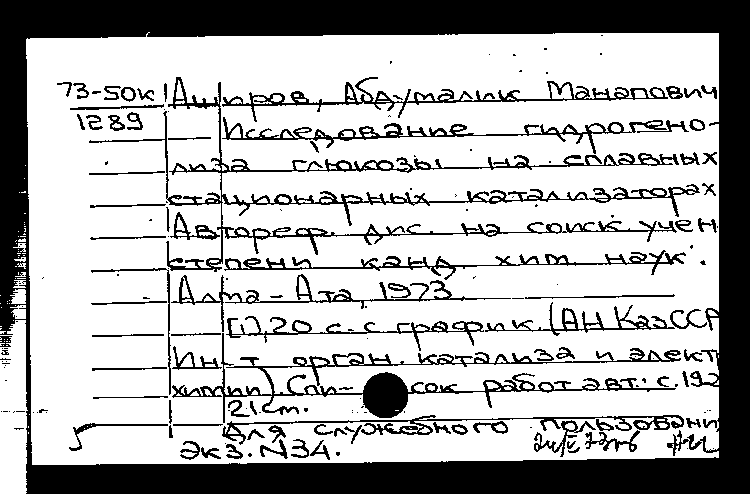 73-50к Аширов, Абдумалик Манапович
1289 Исследование гидрогено-
лиза глюкозы на сплавных
стационарных катализаторах
Автореф. дис. на соиск. учен
степени канд. хим. наук.
Алма-Ата, 1973.
[1], 20 с. с график. (АН КазССР
Ин-т орган. катализа и элект
химии). Спи- сок работ авт.: с. 19-2
21 см.
Для служебного пользовани
Экз. N34.